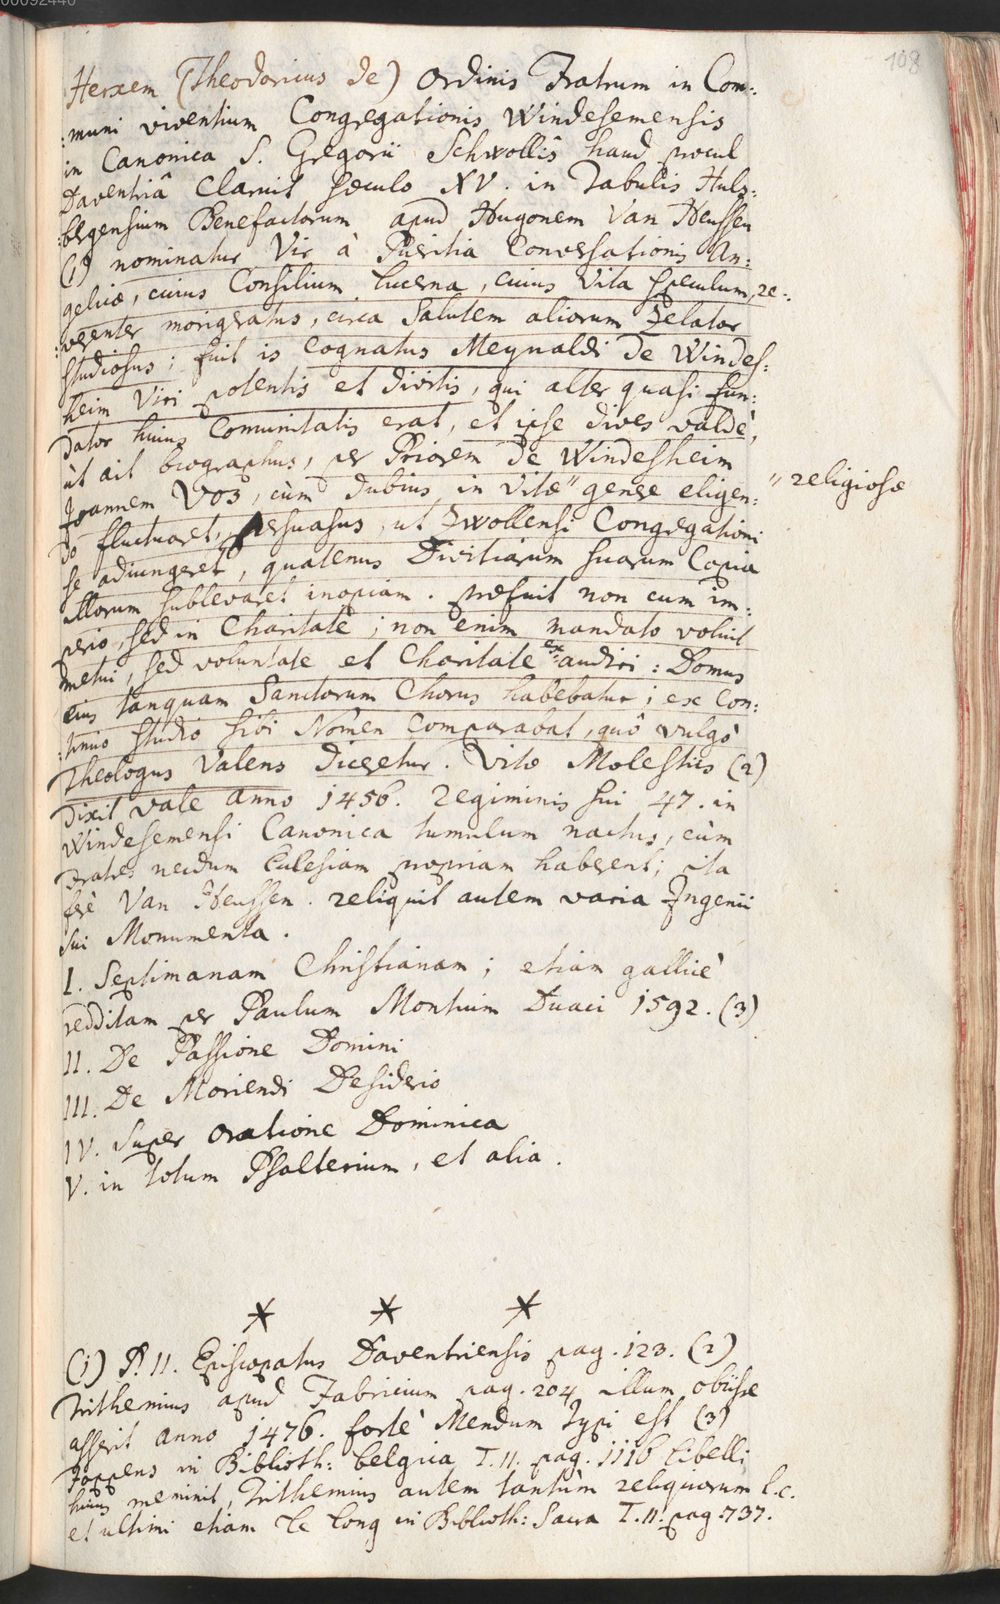 00092440
108
Herxem (Theodoricus de) Ordinis Fratrum in Com:
:muni viventium Congregationis Windesemensis
in Canonica S. Gregorii Schwollis haud procul
Daventriâ claruit sæculo XV. in Tabulis Huls:
:bergensium Benefactorum apud Hugonem Van Heussen
(1) nominatur Vir à Pueritia Conversationis An:
gelicæ, cuius Consilium lucerna, cuius Vita speculum, re:
:verenter morigeratus, circa Salutem aliorum Zelator
studiosus; fuit is cognatus Meynaldi de Windes:
heim Viri potentis et divitis, qui alter quasi fun:
dator huius Comunitatis erat, et ipse dives valdè,
ùt ait biographus, per Priorem de Windesheim
Joannem Vos, cùm dubius in vitæ " genere eligen:
" religiosæ
do fluctuaret, persuasus, ut Zwollensi Congregationi
se adiungeret, quatenus Divitiarum suarum Copia
illorum sublevaret inopiam. præfuit non cum im:
perio, sed in Charitate; non enim mandato voluit
metui, sed voluntate et Charitate ex:audiri: Domus
eius tanquam Sanctorum Chorus habebatur; ex Con:
:tinuo studio sibi Nomen Comparabat, quô vulgò
Theologus Valens diceretur. Vitæ Molestiis (2)
dixit vale anno 1456. regiminis sui 47. in
Windesemensi Canonica tumulum nactus, cùm
Fratres necdum Eclesiam propriam haberent; ita
ferè Van Heussen. reliquit autem varia Ingenii
sui Monumenta.
I. Septimanam Christianam; etiam gallicè
redditam per Paulum Montium Duaci 1592. (3)
II. De Passione Domini
III. De Moriendi Desiderio
IV. Super oratione Dominica
V. in totum Psalterium, et alia.
* * *
(1) P. II. Episcopatus Daventriensis pag. 123. (2)
Trithemius apud Fabricium pag. 204 illum obiisse
asserit anno 1476. fortè Mendum typi est (3)
Foppens in Biblioth: belgica T. II. pag. 1116 libelli
huius meminit, Trithemius autem tantùm reliquorum l.c.
et ultimi etiam le long in Biblioth: Sacra T. II. pag. 737.